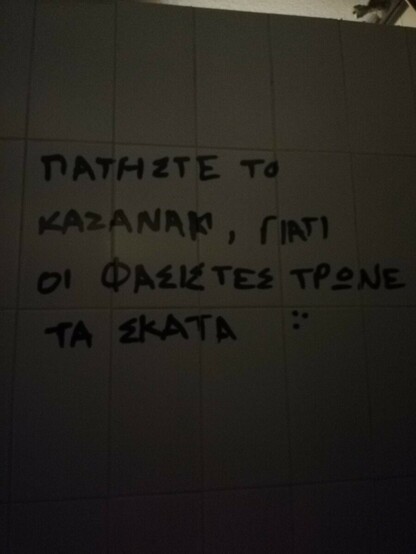 ΠΑΤΗΣΤΕ ΤΟ
ΚΑΖΑΝΑΚΙ, ΓΙΑΤΙ
ΟΙ ΦΑΣΙΣΤΕΣ ΤΡΩΝΕ
ΤΑ ΣΚΑΤΑ